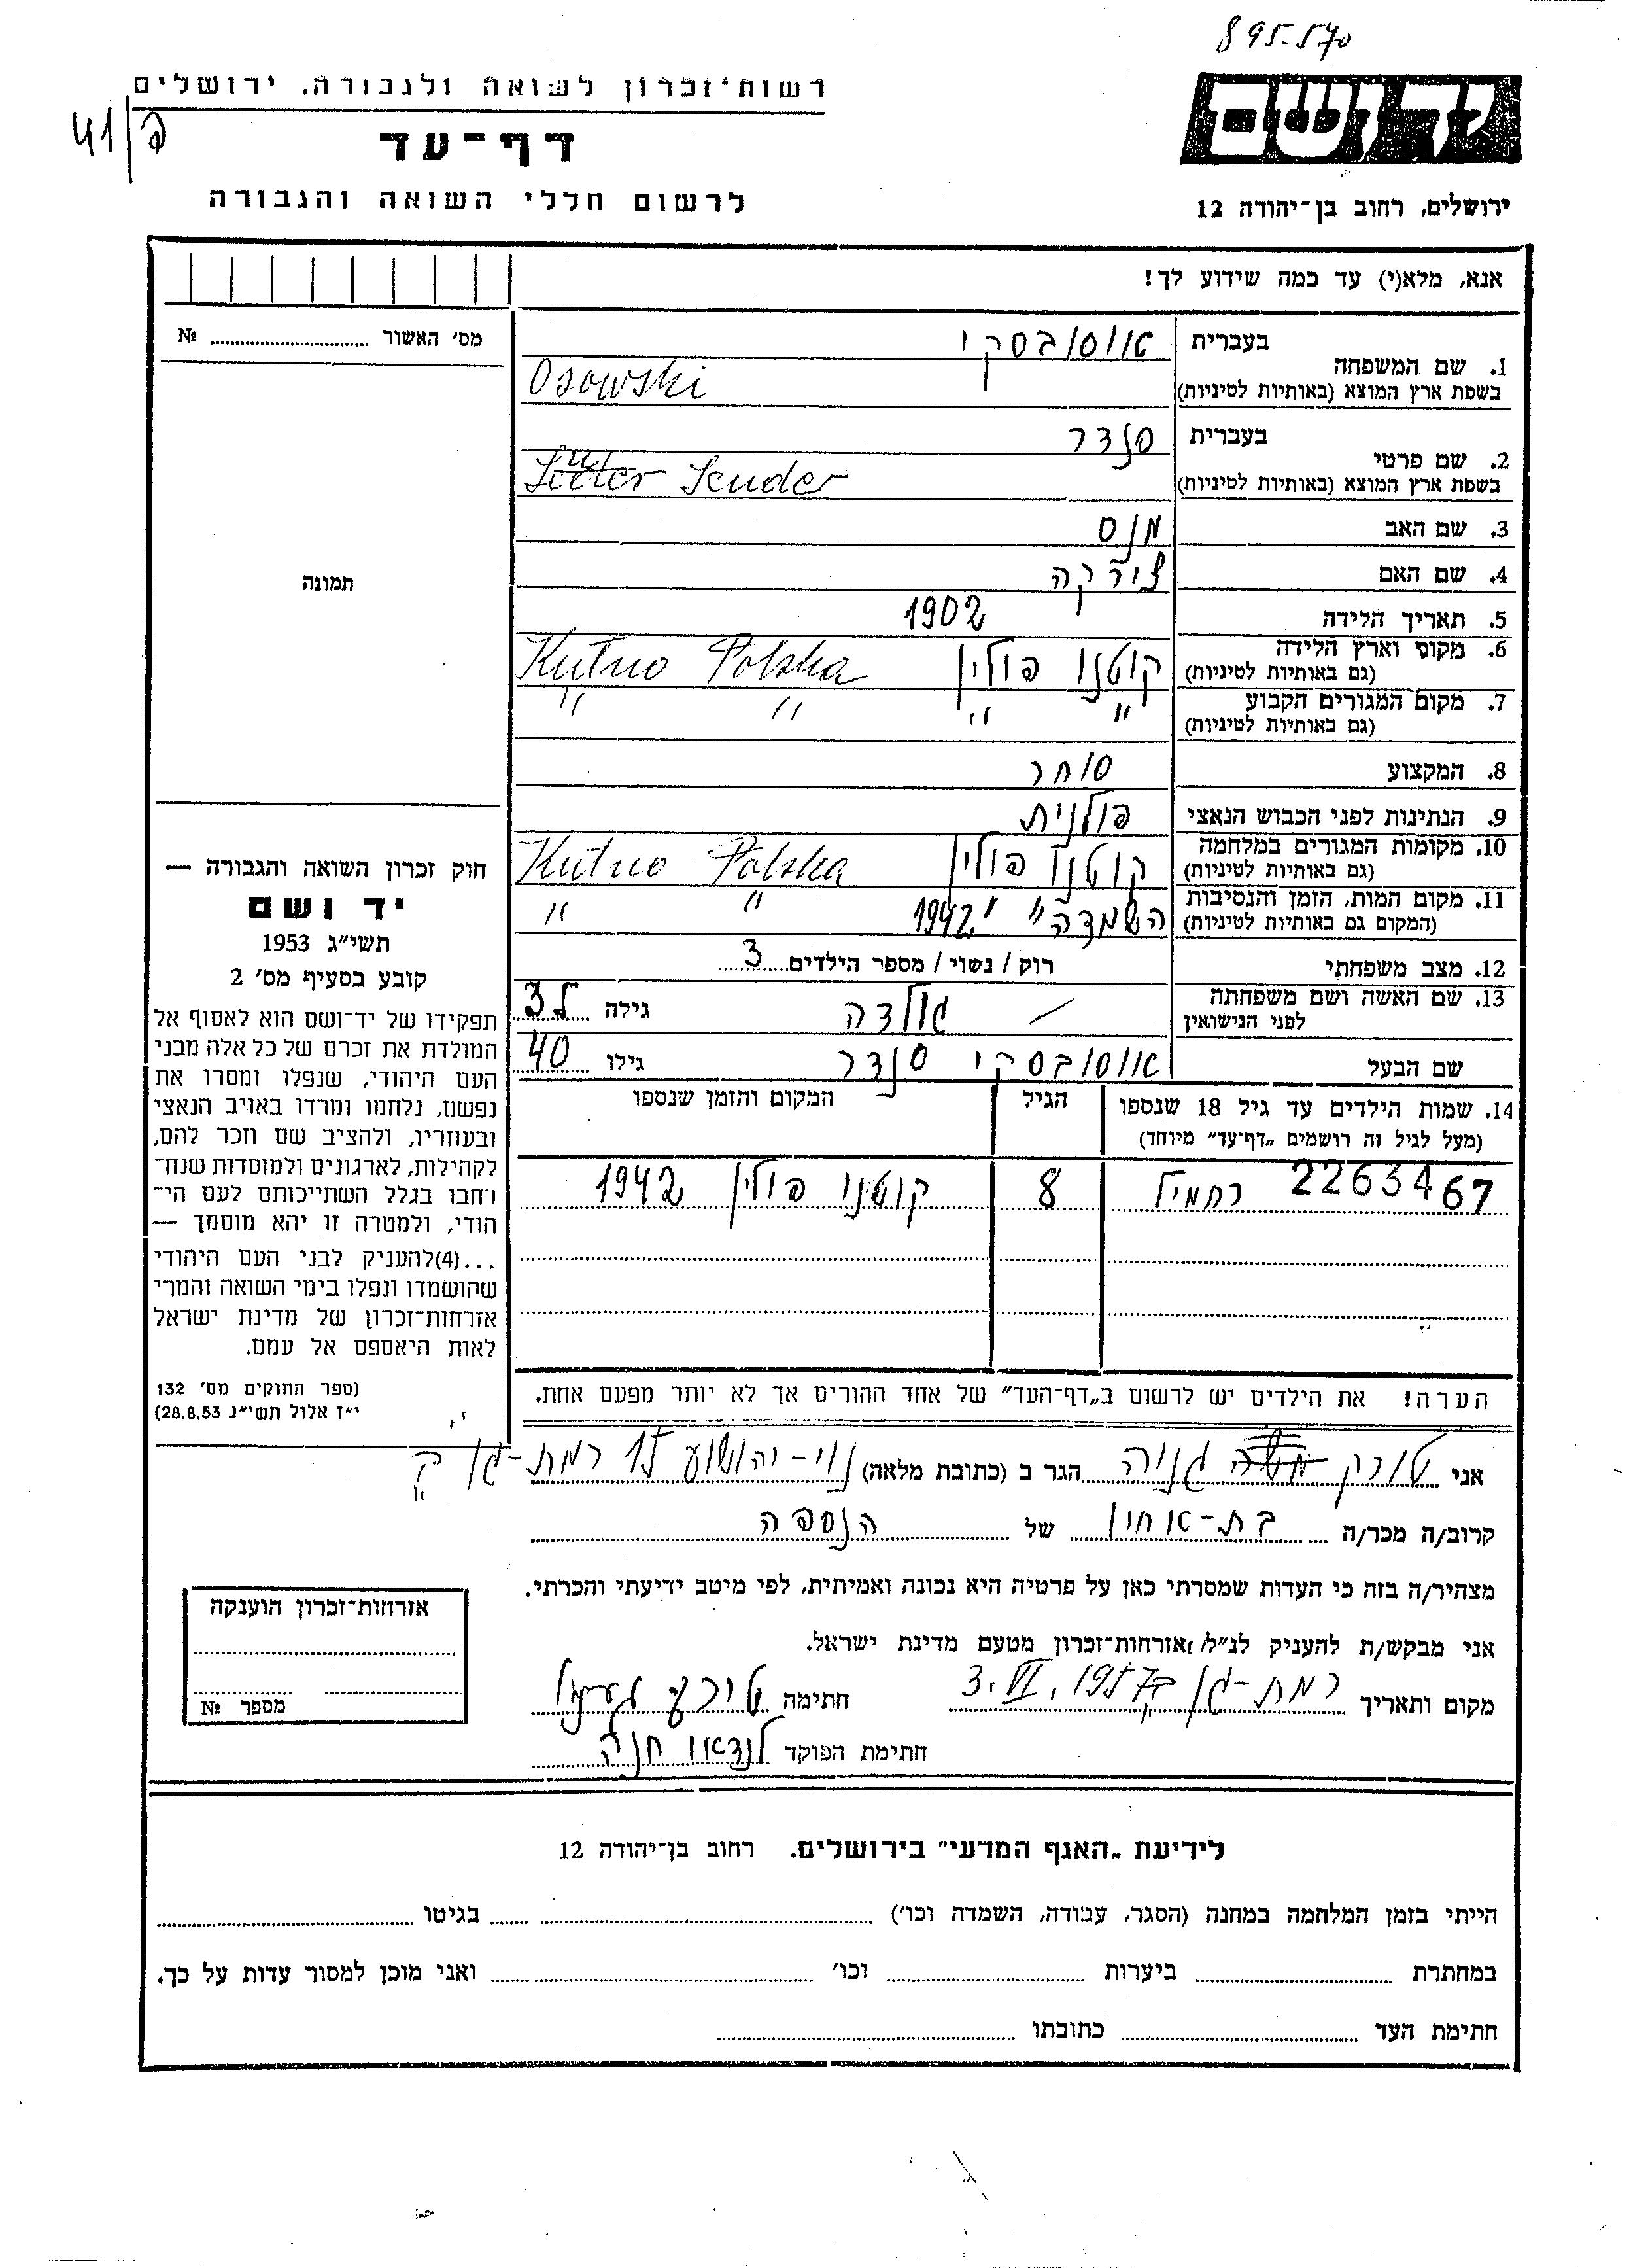 895.570
רשות־זכרון לשואה ולגבורה, ירושלים
דף־עד
לרשום חללי השואה והגבורה
יד ושם
ירושלים, רחוב בן־יהודה 12
אנא, מלא(י) עד כמה שידוע לך!
מס׳ האשור № ....................
תמונה
1. שם המשפחה
בעברית אוסובסקי
בשפת ארץ המוצא (באותיות לטיניות) Osowski
2. שם פרטי
בעברית סנדר
בשפת ארץ המוצא (באותיות לטיניות) Sender
3. שם האב מנס
4. שם האם
5. תאריך הלידה 1902
6. מקום וארץ הלידה קוטנו פולין Kutno Polska
(גם באותיות לטיניות)
7. מקום המגורים הקבוע " " " "
(גם באותיות לטיניות)
8. המקצוע סוחר
9. הנתינות לפני הכבוש הנאצי פולנית
10. מקומות המגורים במלחמה קוטנו פולין Kutno Polska
(גם באותיות לטיניות)
11. מקום המות, הזמן והנסיבות השמדה 1942 " "
(המקום גם באותיות לטיניות)
12. מצב משפחתי רוק / נשוי / מספר הילדים 3
13. שם האשה ושם משפחתה גולדה גילה
לפני הנישואין
שם הבעל אוסובסקי סנדר גילו 40
14. שמות הילדים עד גיל 18 שנספו הגיל המקום והזמן שנספו
(מעל לגיל זה רושמים „דף־עד״ מיוחד)
2263467 רחמיל 8 קוטנו פולין 1942
הערה! את הילדים יש לרשום ב„דף־העד״ של אחד ההורים אך לא יותר מפעם אחת.
חוק זכרון השואה והגבורה —
יד ושם
תשי״ג 1953
קובע בסעיף מס׳ 2
תפקידו של יד־ושם הוא לאסוף אל
המולדת את זכרם של כל אלה מבני
העם היהודי, שנפלו ומסרו את
נפשם, נלחמו ומרדו באויב הנאצי
ובעוזריו, ולהציב שם וזכר להם,
לקהילות, לארגונים ולמוסדות שנח־
רחבו בגלל השתייכותם לעם הי־
הודי, ולמטרה זו יהא מוסמך —
...(4)להעניק לבני העם היהודי
שהושמדו ונפלו בימי השואה והמרי
אזרחות־זכרון של מדינת ישראל
לאות היאספם אל עמם.
(ספר החוקים מס׳ 132
י״ז אלול תשי״ג 28.8.53)
אני טורק גניה הגר ב (כתובת מלאה) נוי-יהושע 15 רמת-גן
קרוב/ה מכר/ה בת-אחין של הנספה
מצהיר/ה בזה כי העדות שמסרתי כאן על פרטיה היא נכונה ואמיתית, לפי מיטב ידיעתי והכרתי.
אני מבקש/ת להעניק לנ״ל אזרחות־זכרון מטעם מדינת ישראל.
מקום ותאריך רמת-גן 3.VI.1957 חתימה
חתימת הפוקד לנדאו חנה
אזרחות־זכרון הוענקה
מספר №
לידיעת „האגף המדעי״ בירושלים. רחוב בן־יהודה 12
הייתי בזמן המלחמה במחנה (הסגר, עבודה, השמדה וכו׳) .................... בגיטו ....................
במחתרת .................... ביערות .................... וכו׳ .................... ואני מוכן למסור עדות על כך.
חתימת העד .................... כתובתו ....................